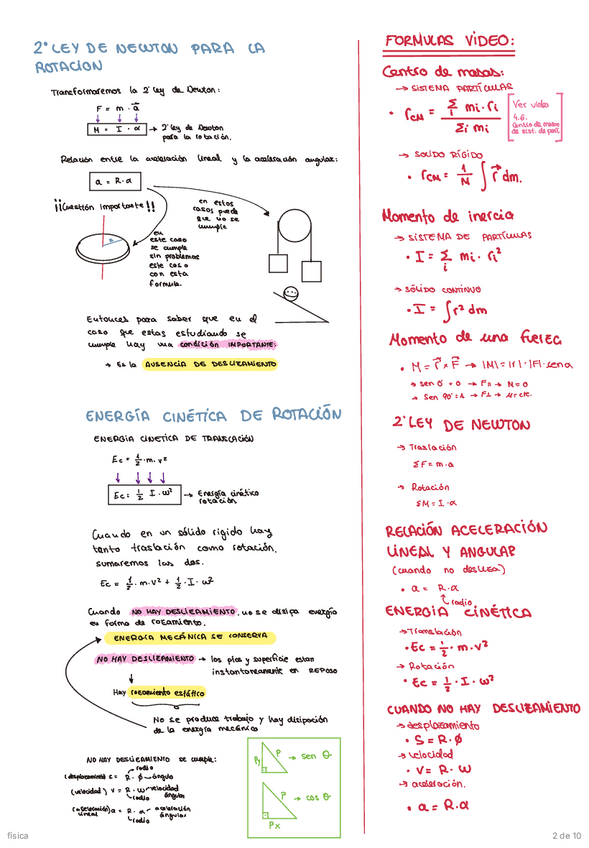 2ª LEY DE NEWTON PARA LA
ROTACION
Transformaremos la 2ª ley de Newton:
F = m · a⃗
M = I · α → 2ª ley de Newton
para la rotación.
Relación entre la aceleración lineal y la aceleración angular:
a = R·α
¡¡Cuestión importante!!
en
este caso
se cumple
sin problemas
este caso
con esta
formula.
en estos
casos puede
que no se
cumpla
R
Entonces para saber que en el
caso que estas estudiando se
cumple hay una condición IMPORTANTE:
→ Es la AUSENCIA DE DESLIZAMIENTO
ENERGÍA CINÉTICA DE ROTACIÓN
ENERGÍA CINETICA DE TRANSLACIÓN
Ec = 1/2 · m · v²
Ec = 1/2 I · ω² → Energía cinética
rotación.
Cuando en un sólido rigido hay
tanto traslación como rotación,
sumaremos las dos.
Ec = 1/2 · m · v² + 1/2 · I · ω²
Cuando NO HAY DESLIZAMIENTO, no se disipa energía
en forma de rozamiento.
ENERGÍA MECÁNICA SE CONSERVA
NO HAY DESLIZAMIENTO → los ptos y superficie estan
instantaneamente en REPOSO
Hay rozamiento estático
No se produce trabajo y hay disipación
de la energía mecánica
NO HAY DESLIZAMIENTO se cumple:
(desplazamiento) s = R · ø → ángulo
radio
(velocidad) v = R · ω → velocidad
angular
radio
(aceleración) a = R · α → aceleración
lineal
angular
radio
Py P → sen θ
P → cos θ
Px
FORMULAS VIDEO:
Centro de masas:
→ SISTEMA PARTÍCULAS
• r_CM = Σi mi · ri / Σi mi
Ver video
4.6.
Centro de masas
de sist. de part.
→ SOLIDO RÍGIDO
• r_CM = 1/M ∫ r⃗ dm.
Momento de inercia
→ SISTEMA DE PARTÍCULAS
• I = Σi mi · ri²
→ SÓLIDO CONTINUO
• I = ∫ r² dm
Momento de una fuerza
• M = r⃗ × F⃗ → |M| = |r| · |F| · senα
→ sen 0º = 0 → F∥ → M = 0
→ Sen 90º = 1 → F⊥ → M = cte.
2ª LEY DE NEWTON
→ Traslación
ΣF = m · a
→ Rotación
ΣM = I · α
RELACIÓN ACELERACIÓN
LINEAL Y ANGULAR
(cuando no desliza)
• a = R · α
radio
ENERGÍA CINÉTICA
→ Translación
• Ec = 1/2 · m · v²
→ Rotación
• Ec = 1/2 · I · ω²
CUANDO NO HAY DESLIZAMIENTO
→ desplazamiento
• S = R · ø
→ velocidad
• V = R · ω
→ aceleración.
• a = R.α
fisica
2 de 10